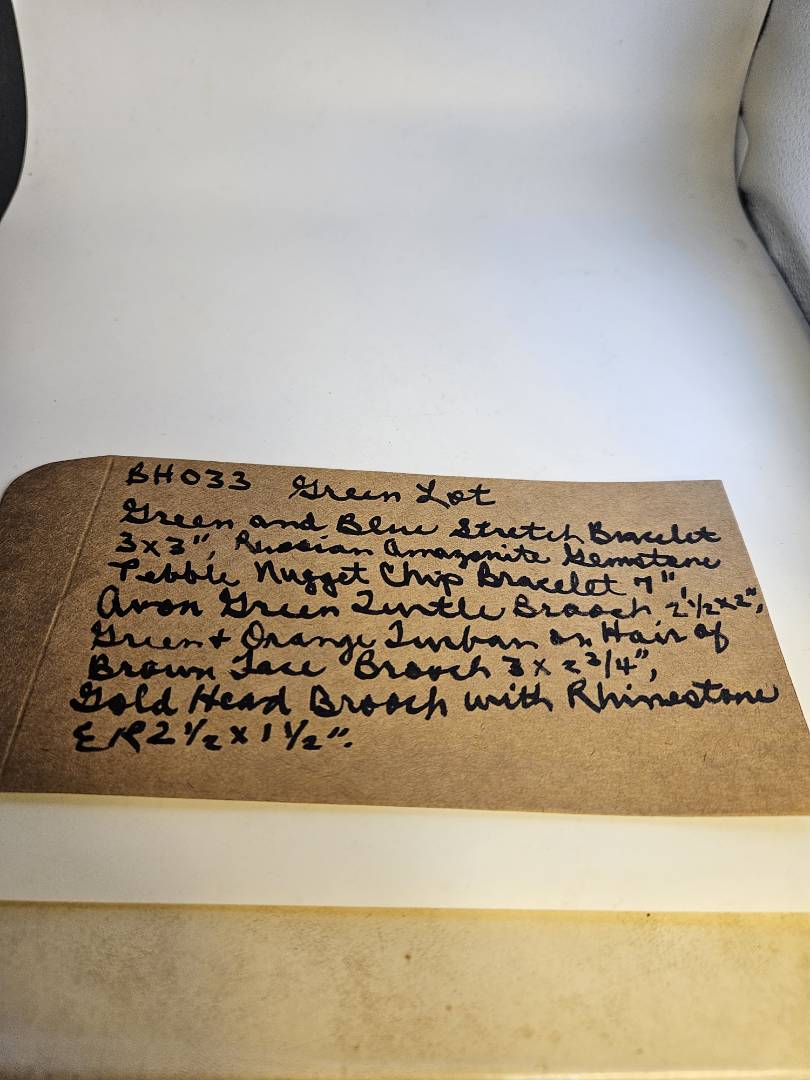 BH033 Green Lot
Green and Blue Stretch Bracelet
3x3", Russian Amazonite Gemstone
Pebble Nugget Chip Bracelet 7"
Avon Green Turtle Brooch 2 1/2 x 2",
Green + Orange Turban on Hair of
Brown Face Brooch 3 x 2 3/4",
Gold Head Brooch with Rhinestone
ER 2 1/2 x 1 1/2".